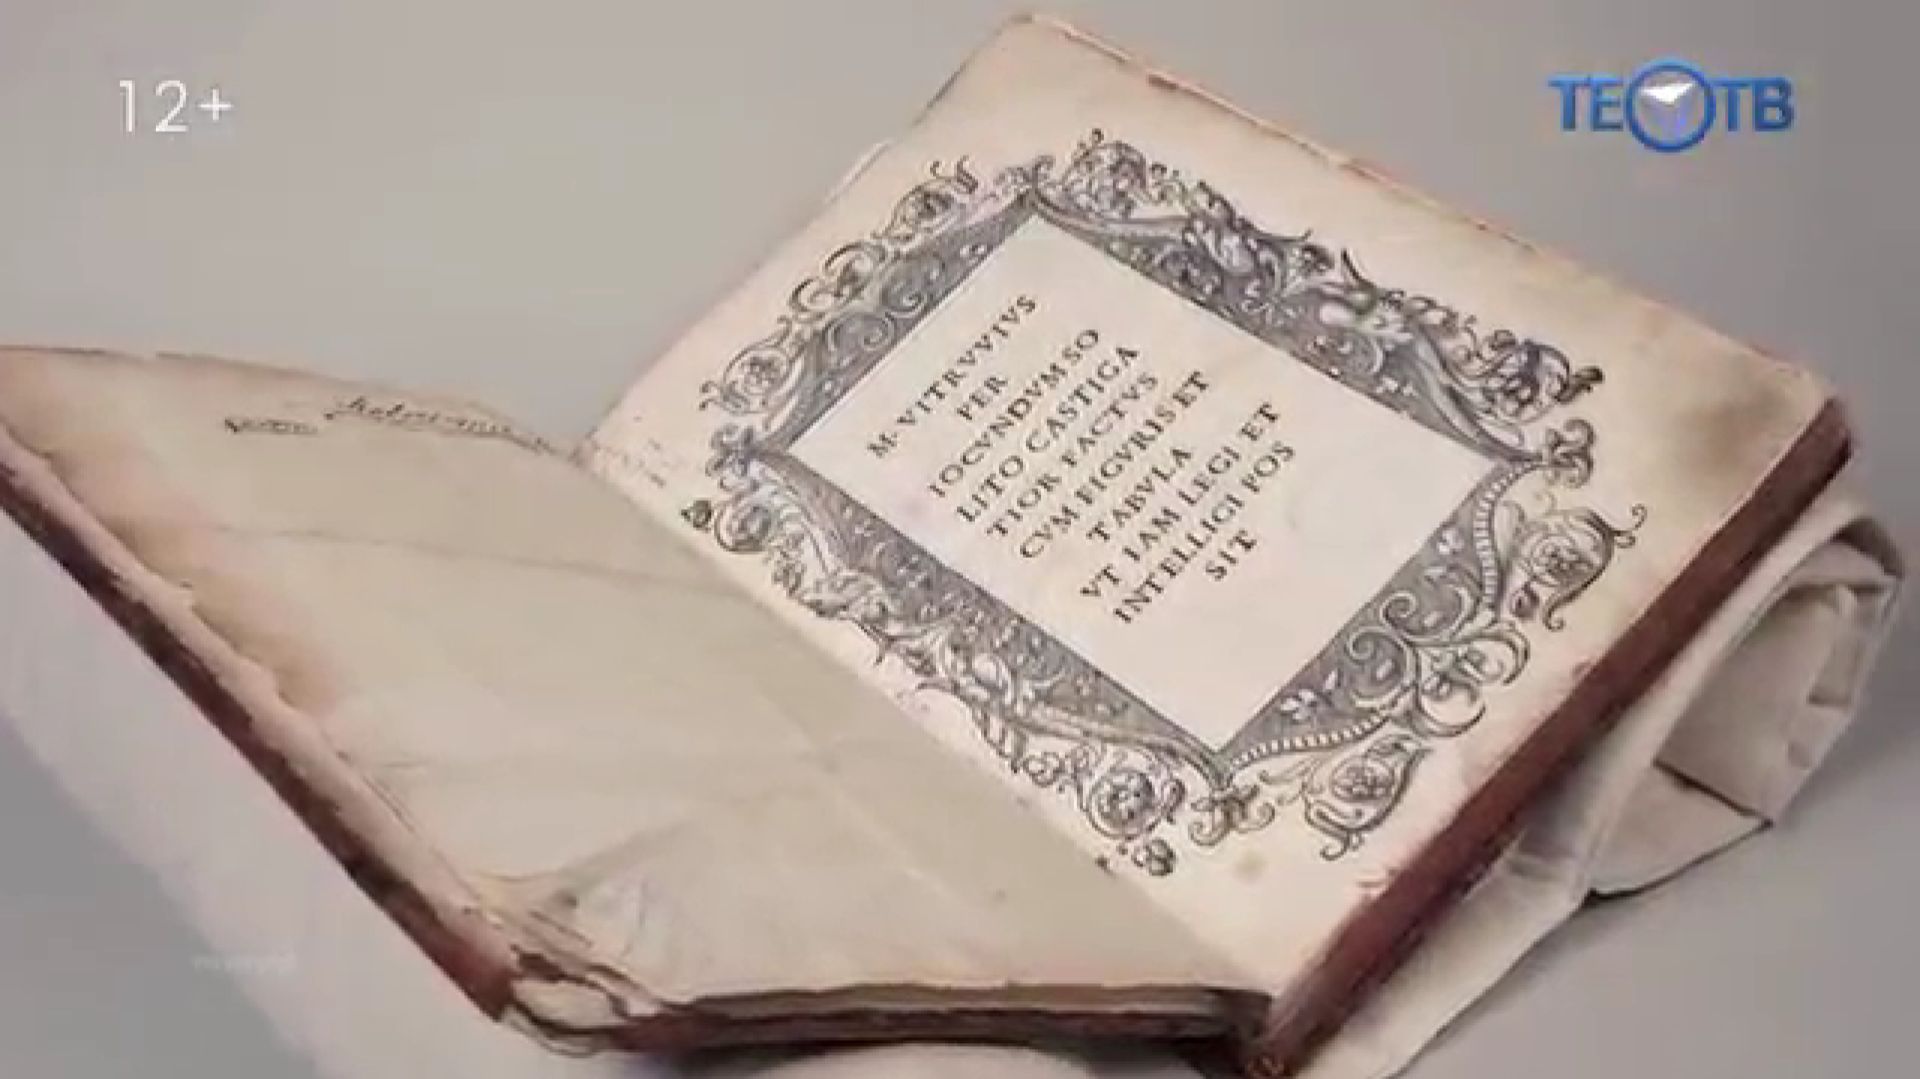 12+
ТЕОТВ
M·VITRVVIVS
PER
IOCVNDVM SO
LITO CASTIGA
TIOR FACTVS
CVM FIGVRIS ET
TABVLA
VT IAM LEGI ET
INTELLIGI POS
SIT